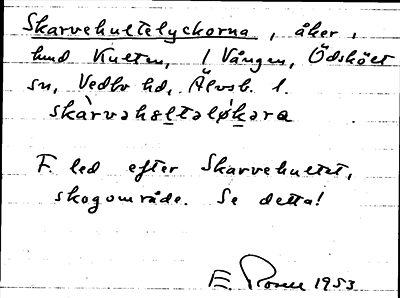 Skarvehultelyckorna, åker,
hmd Kulten, / Vången, Ödskölt
sn, Vedbo hd, Älvsb. l.
skàrvəhɵltəløkəra
F. led efter Skarvehultet,
skogområde. Se detta!
E. 1953